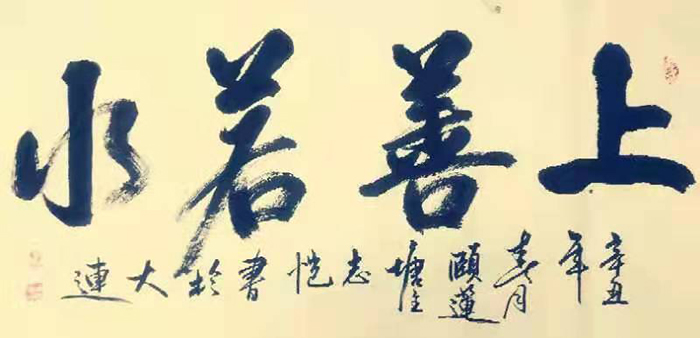 上善若水
辛丑年春月頤蓮塘主志愷書於大連